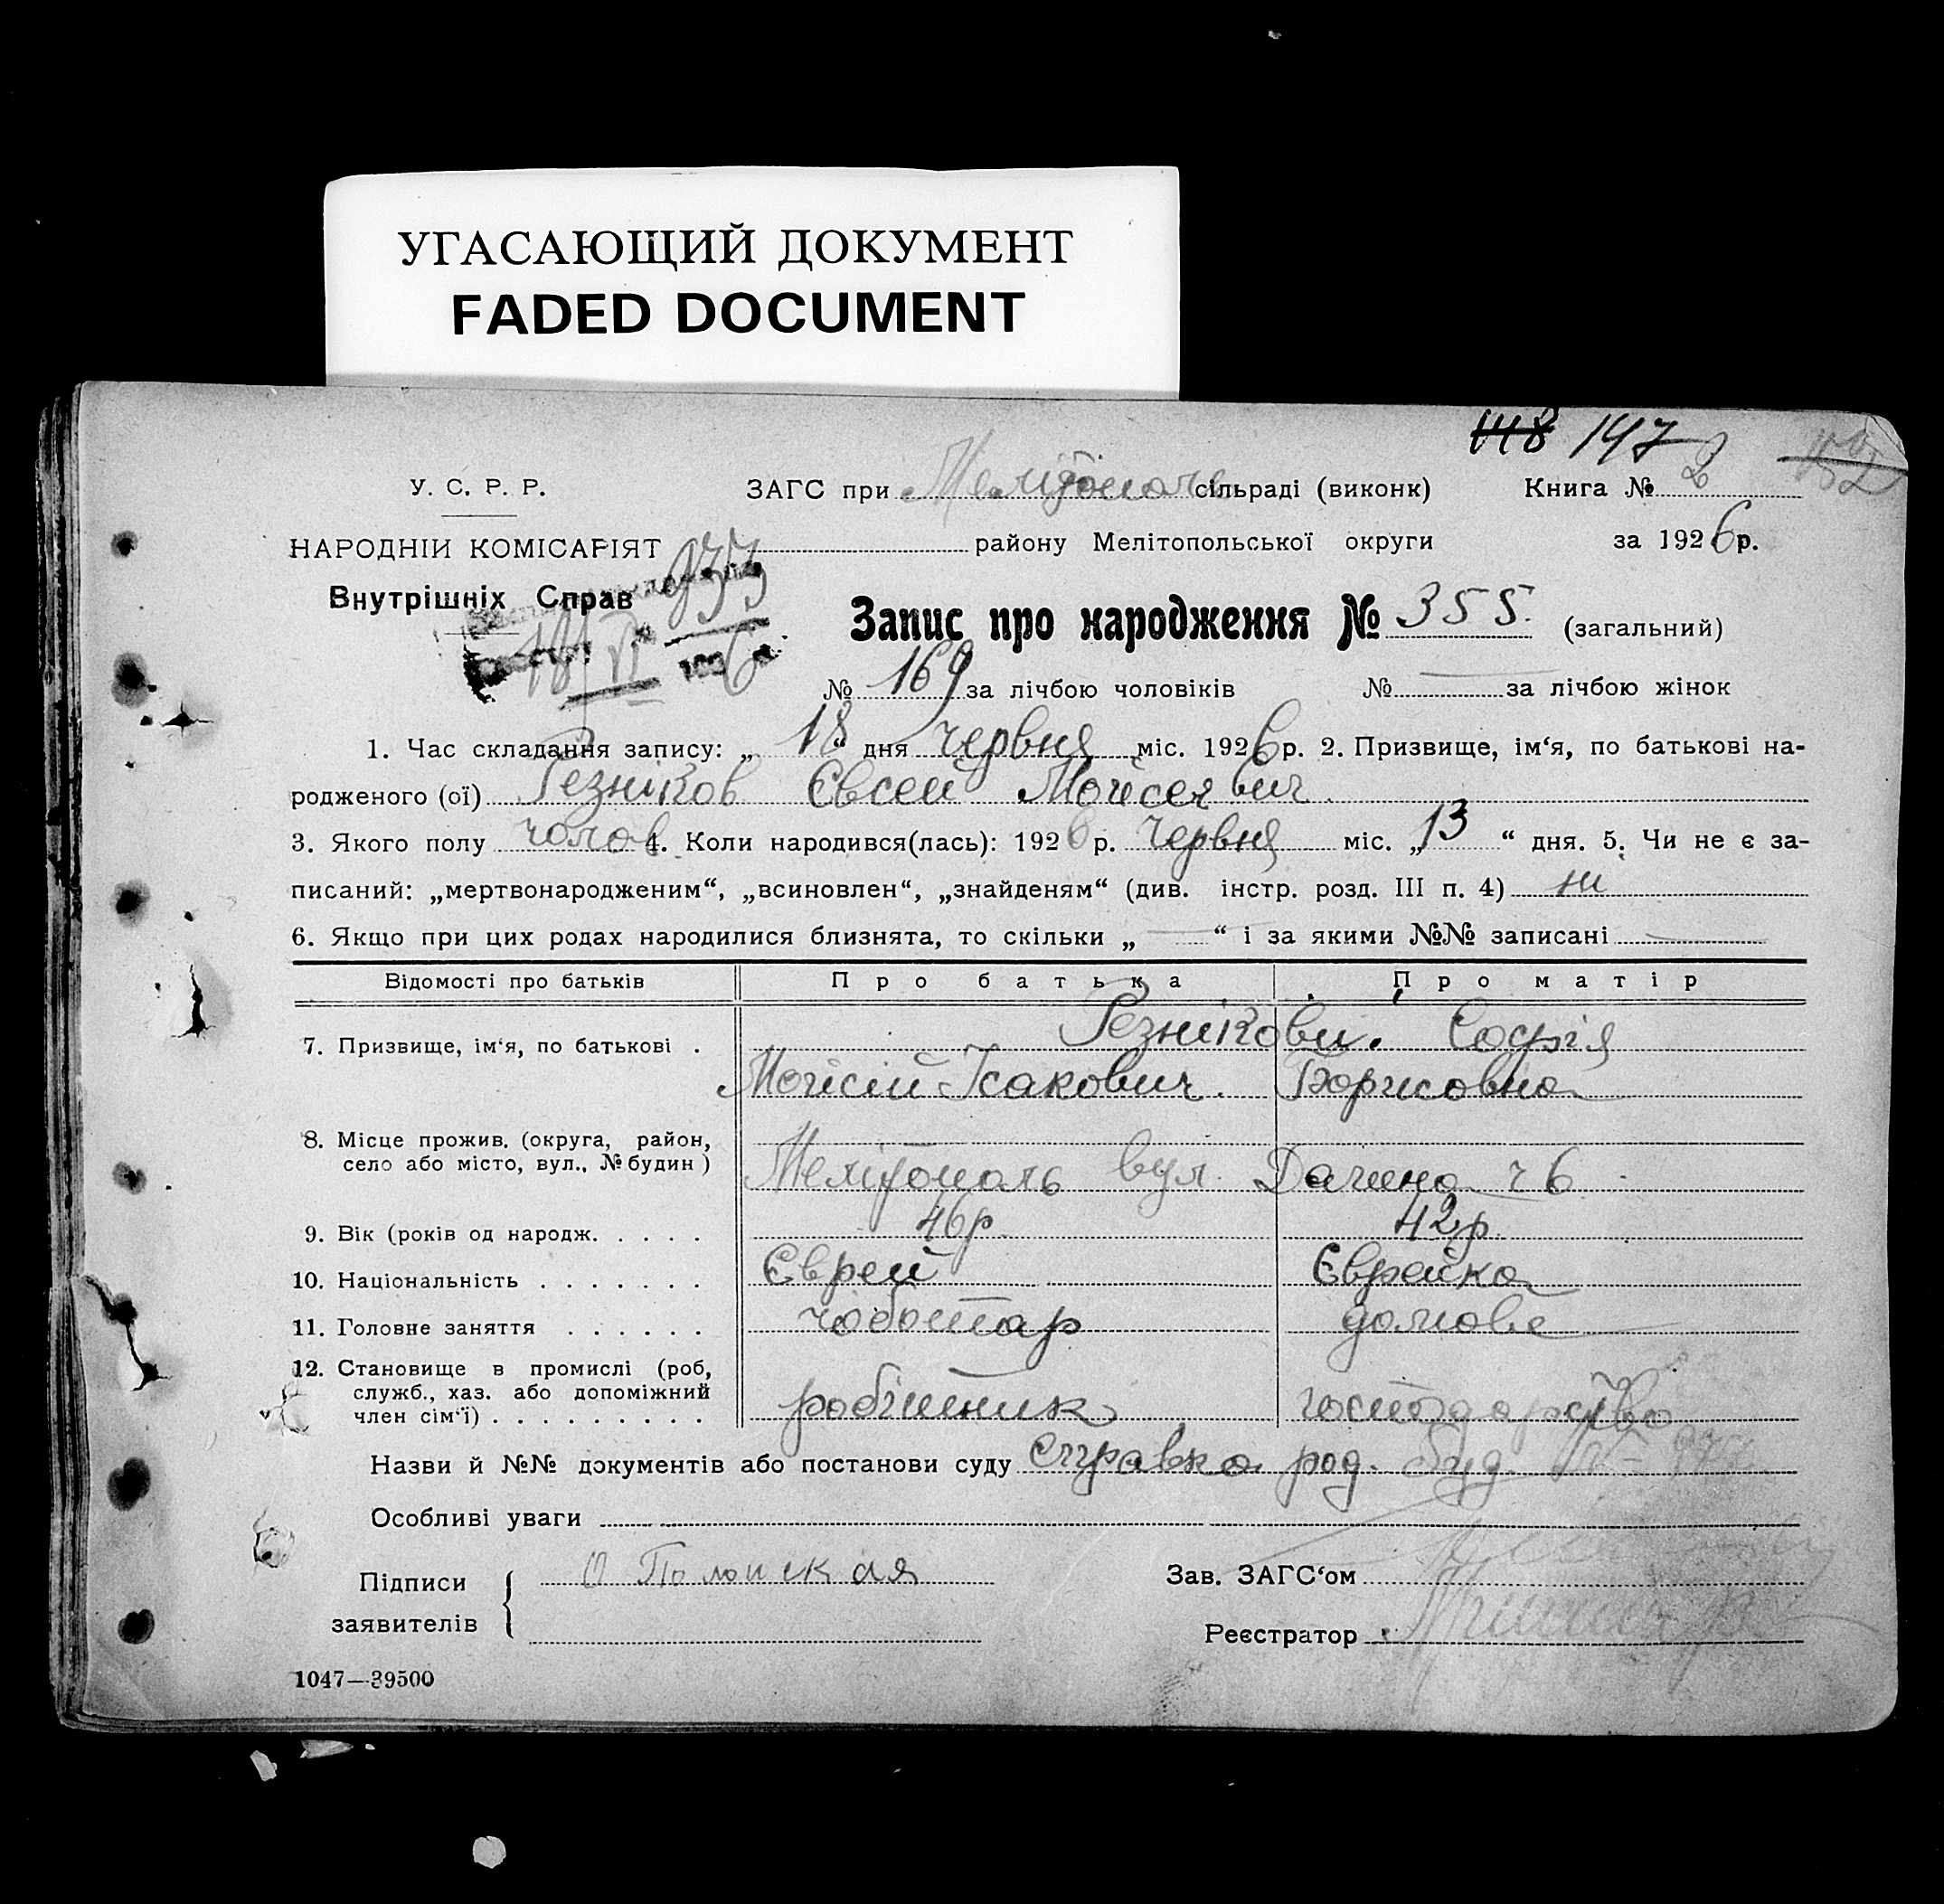 УГАСАЮЩИЙ ДОКУМЕНТ
FADED DOCUMENT
148 147
У. С. Р. Р. ЗАГС при Мелітополь сільраді (виконк) Книга № 2
НАРОДНІИ КОМІСАРІЯТ району Мелітопольської округи за 1926 р.
Внутрішніх Справ
Запис про народження № 355. (загальний)
№ 169 за лічбою чоловіків № за лічбою жінок
1. Час складання запису: „ 18 “ дня червня міс. 1926 р. 2. Призвище, ім‘я, по батькові на-
родженого (ої) Резніков Євсей Мойсеевич
3. Якого полу чолов. 4. Коли народився(лась): 1926 р. Червня міс. „ 13 “ дня. 5. Чи не є за-
писаний: „мертвонародженим“, „всиновлен“, „знайденям“ (див. інстр. розд. III п. 4) ні
6. Якщо при цих родах народилися близнята, то скільки „ “ і за якими №№ записані
Відомості про батьків Про батька Про матір
7. Призвище, ім‘я, по батькові . Резнікови. Софія
Мойсій Ісакович. Борисовна
8. Місце прожив. (округа, район,
село або місто, вул., № будин ) Мелітополь вул. Дачна ч 6
9. Вік (років од народж. . . . . 46 р. 42 р.
10. Національність . . . . . . . Єврей Єврейка
11. Головне заняття . . . . . . чоботар домове
12. Становище в промислі (роб,
служб., хаз. або допоміжний
член сім‘ї) . . . . . . . . . робітник господарство
Назви й №№ документів або постанови суду Справка род. буд. №
Особливі уваги
Підписи
заявителів О Полонская
Зав. ЗАГС‘ом
Реєстратор
1047—39500